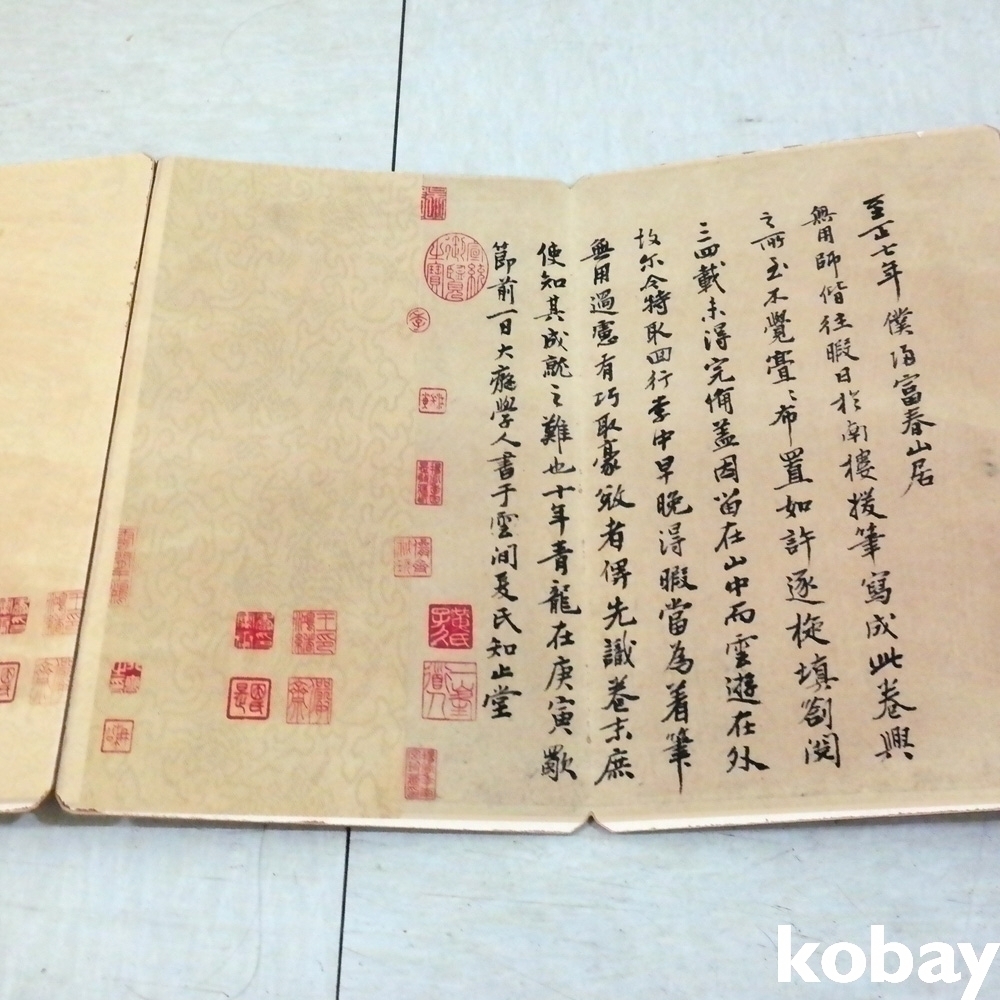 至正七年僕歸富春山居
無用師偕往暇日於南樓援筆寫成此卷興
之所至不覺亹〻布置如許逐旋填劄閱
三四載未得完備盖因留在山中而雲遊在外
故尔今特取回行李中早晚得暇當為着筆
無用過慮有巧取豪敓者俾先識卷末庶
使知其成就之難也十年青龍在庚寅歜
節前一日大癡學人書于雲間夏氏知止堂
宣統御覽之寶
季
黃氏子久
一峯道人
kobay